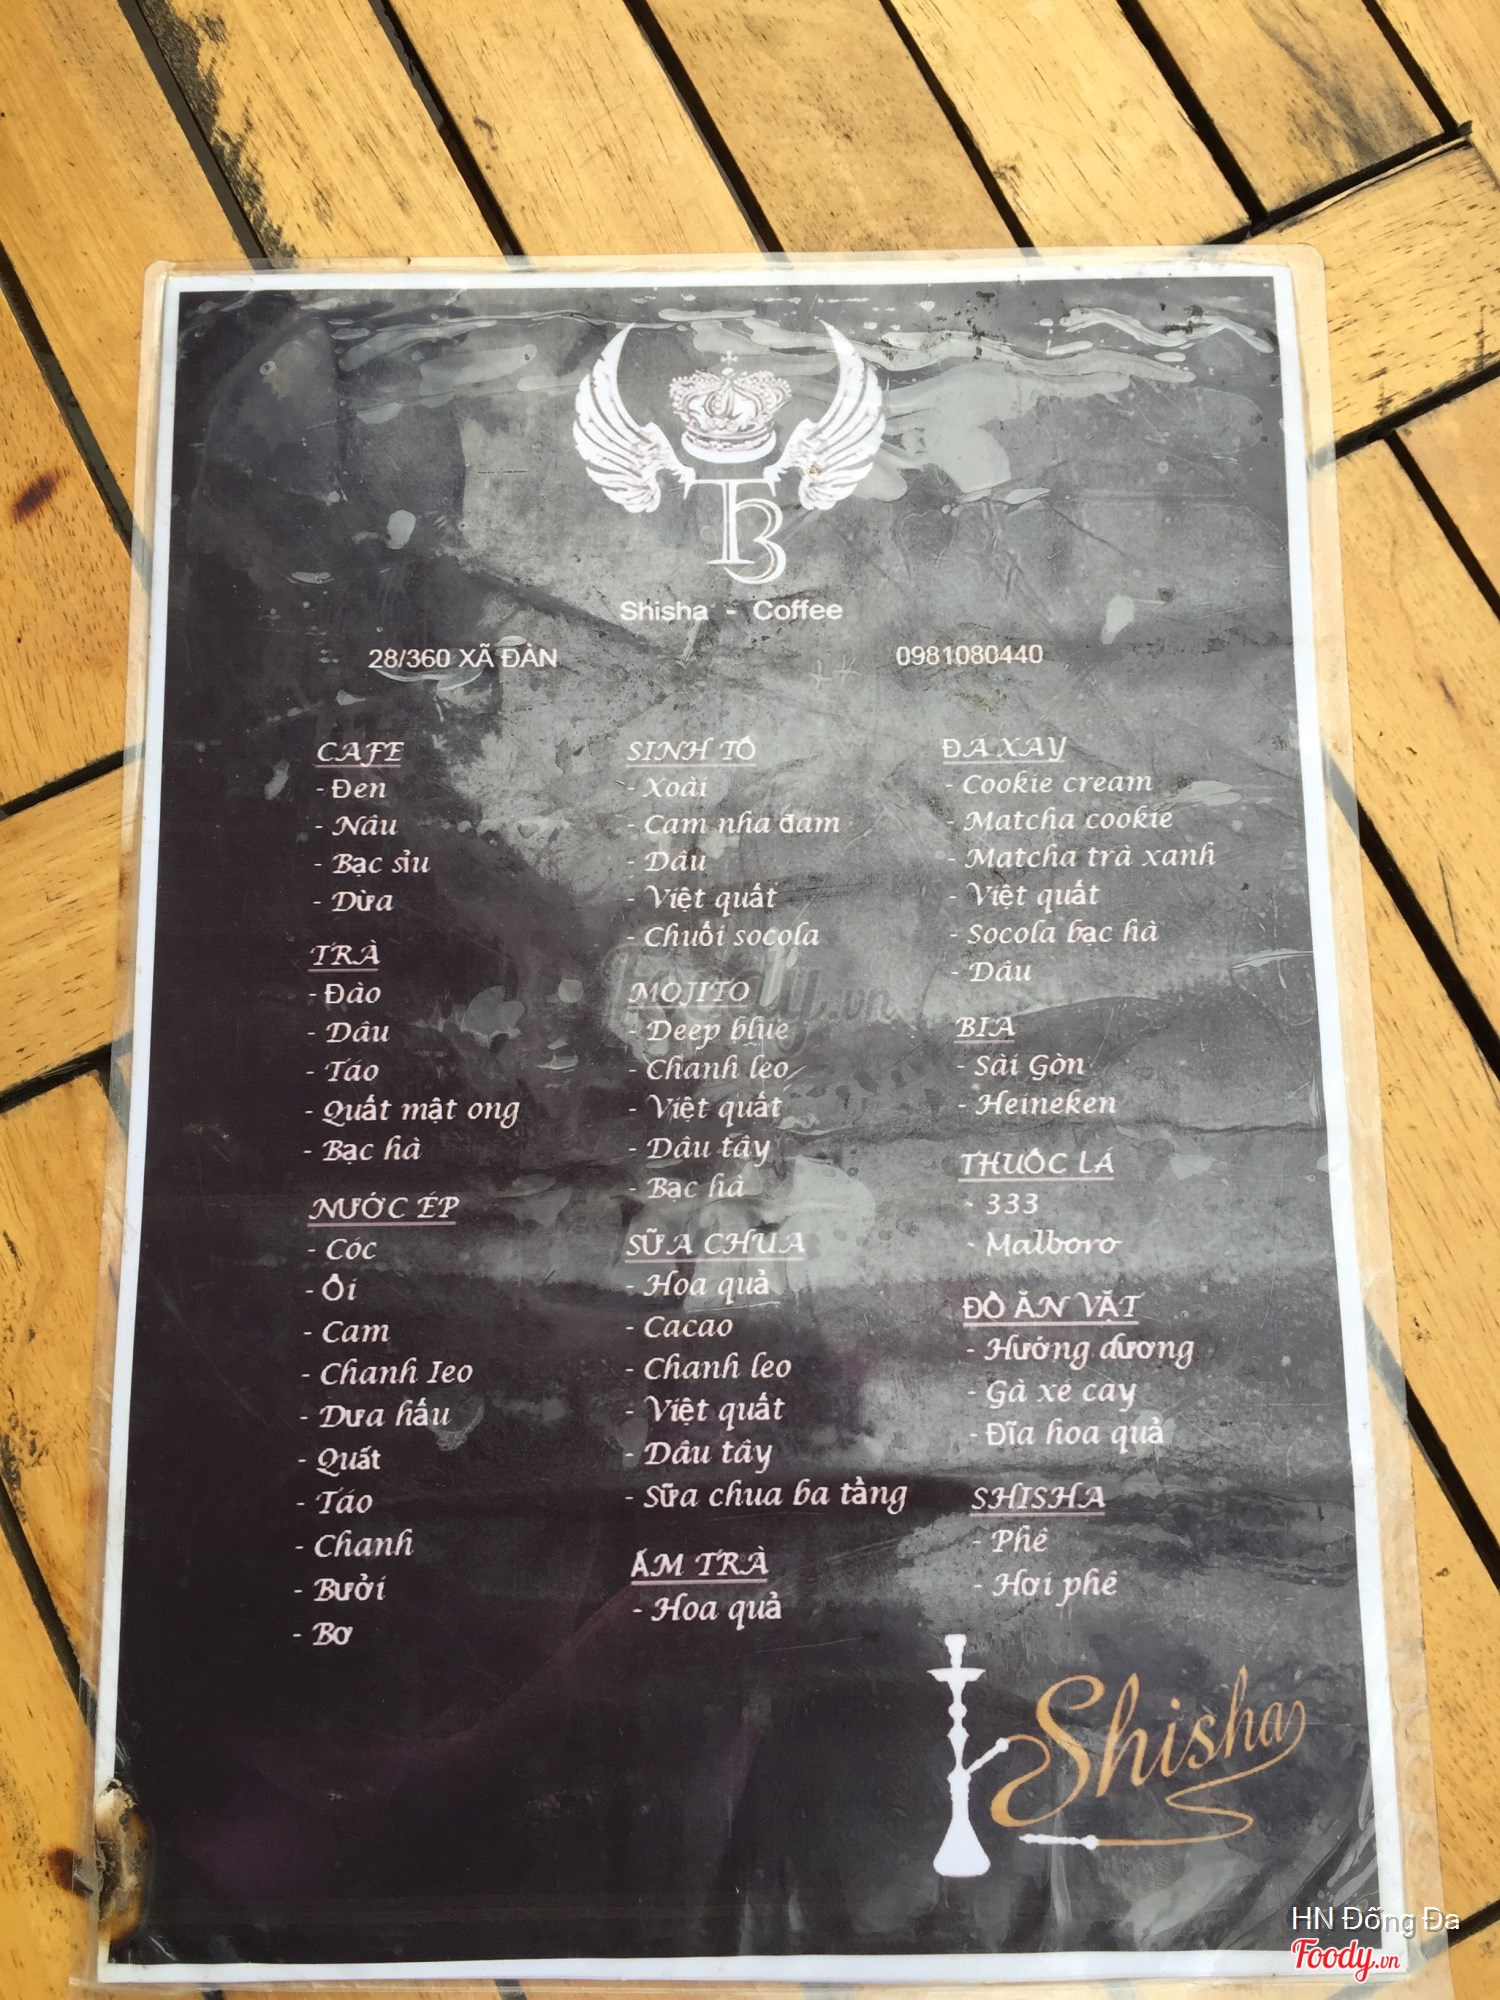 TB
Shisha - Coffee
28/360 XÃ ĐÀN
0981080440
CAFE
- Đen
- Nâu
- Bạc sỉu
- Dừa
TRÀ
- Đào
- Dâu
- Táo
- Quất mật ong
- Bạc hà
NƯỚC ÉP
- Cóc
- Ổi
- Cam
- Chanh Ieo
- Dưa hấu
- Quất
- Táo
- Chanh
- Bưởi
- Bơ
SINH TỐ
- Xoài
- Cam nha đam
- Dâu
- Việt quất
- Chuối socola
MOJITO
- Deep blue
- Chanh leo
- Việt quất
- Dâu tây
- Bạc hà
SỮA CHUA
- Hoa quả
- Cacao
- Chanh leo
- Việt quất
- Dâu tây
- Sữa chua ba tầng
ẤM TRÀ
- Hoa quả
ĐÁ XAY
- Cookie cream
- Matcha cookie
- Matcha trà xanh
- Việt quất
- Socola bạc hà
- Dâu
BIA
- Sài Gòn
- Heineken
THUỐC LÁ
- 333
- Malboro
ĐỒ ĂN VẶT
- Hướng dương
- Gà xé cay
- Đĩa hoa quả
SHISHA
- Phê
- Hơi phê
Shisha
foody.vn
HN Đống Đa
Foody.vn